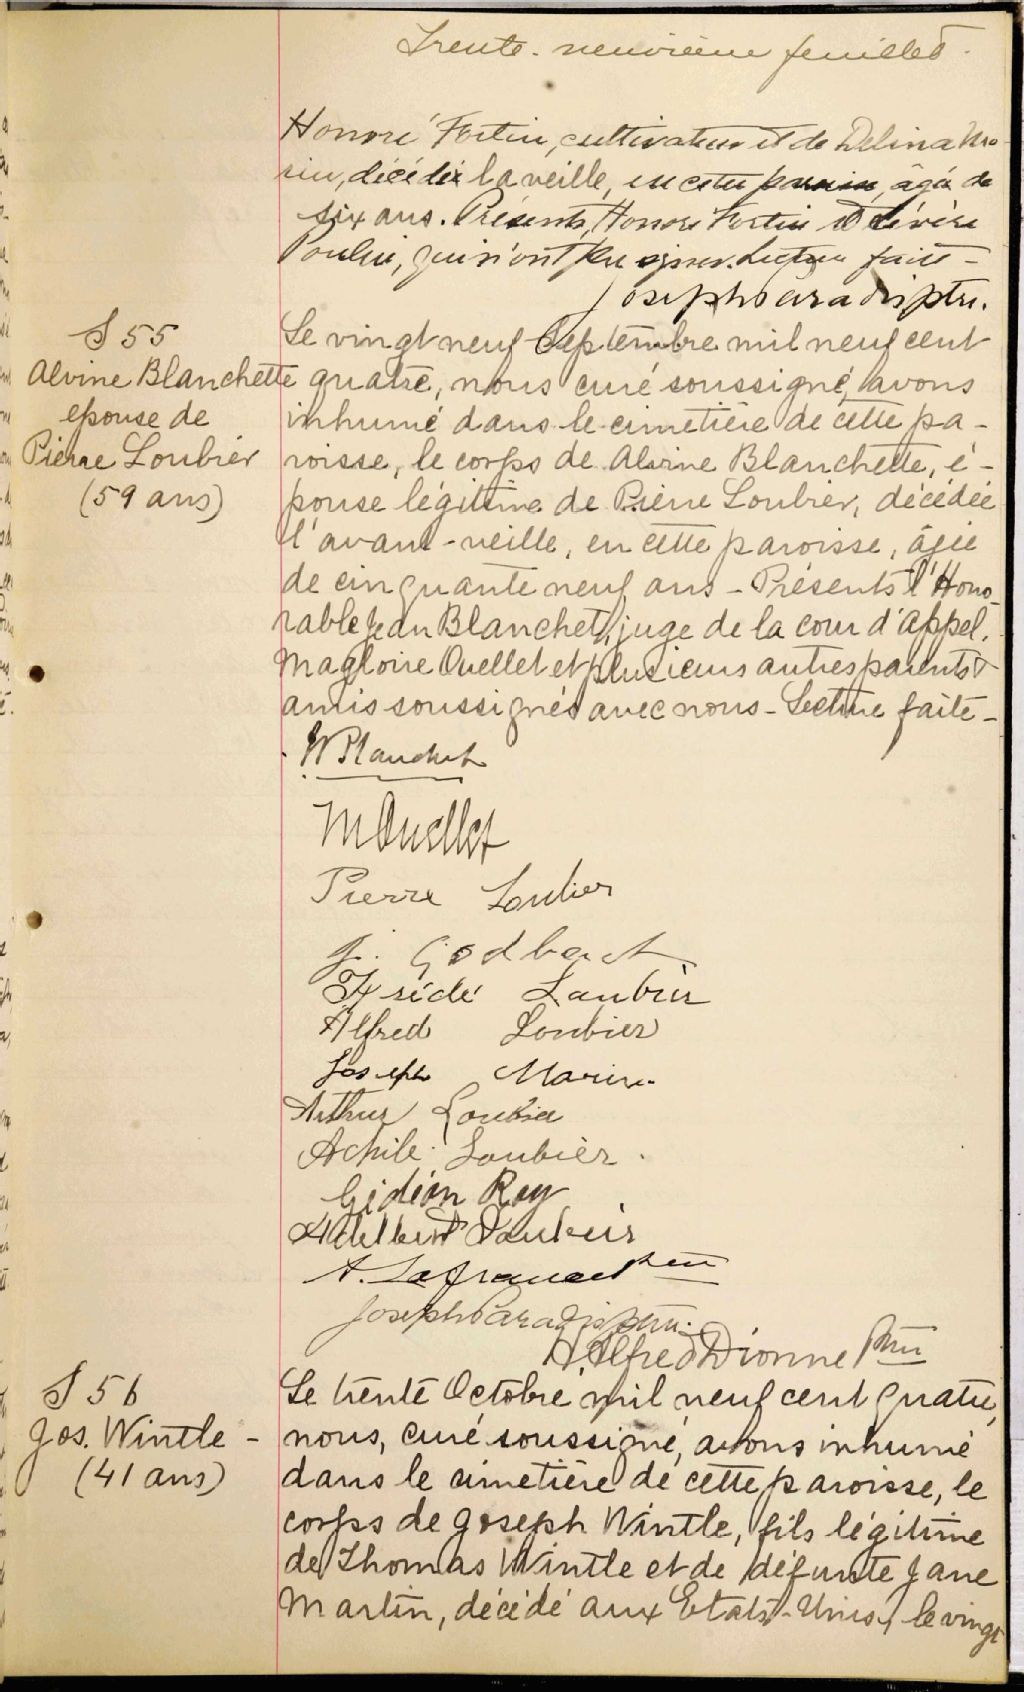 Trente-neuvième feuillet.
Honoré Fortin, cultivateur et de Delina Mo-
rin, décédée la veille, en cette paroisse, âgée de
six ans. Présents, Honoré Fortin et
Poulin, qui n'ont pu signer. Lecture faite -
Joseph Paradis ptre.
S 55
Alvine Blanchette
épouse de
Pierre Loubier
(59 ans)
Le vingt neuf Septembre mil neuf cent
quatre, nous curé soussigné, avons
inhumé dans le cimetière de cette pa-
roisse, le corps de Alvine Blanchette, é-
pouse légitime de Pierre Loubier, décédée
l'avant-veille, en cette paroisse, âgée
de cinquante neuf ans - Présents l'Hono-
rable Jean Blanchet, juge de la cour d'Appel,
Magloire Ouellet et plusieurs autres parents &
amis soussignés avec nous - Lecture faite -
Blanchet
M Ouellet
Pierre Loubier
J. Godbout
Frédé Loubier
Alfred Loubier
Joseph Morin
Arthur Loubier
Achile Loubier.
Gidéon Roy
Adelbert Loubier
A. Lafrance ptre
Joseph Paradis ptre.
H. Alfred Dionne Ptre
S 56
Jos. Wintle -
(41 ans)
Le trente Octobre mil neuf cent quatre,
nous, curé soussigné, avons inhumé
dans le cimetière de cette paroisse, le
corps de Joseph Wintle, fils légitime
de Thomas Wintle et de défunte Jane
Martin, décédé aux Etats-Unis, le vingt